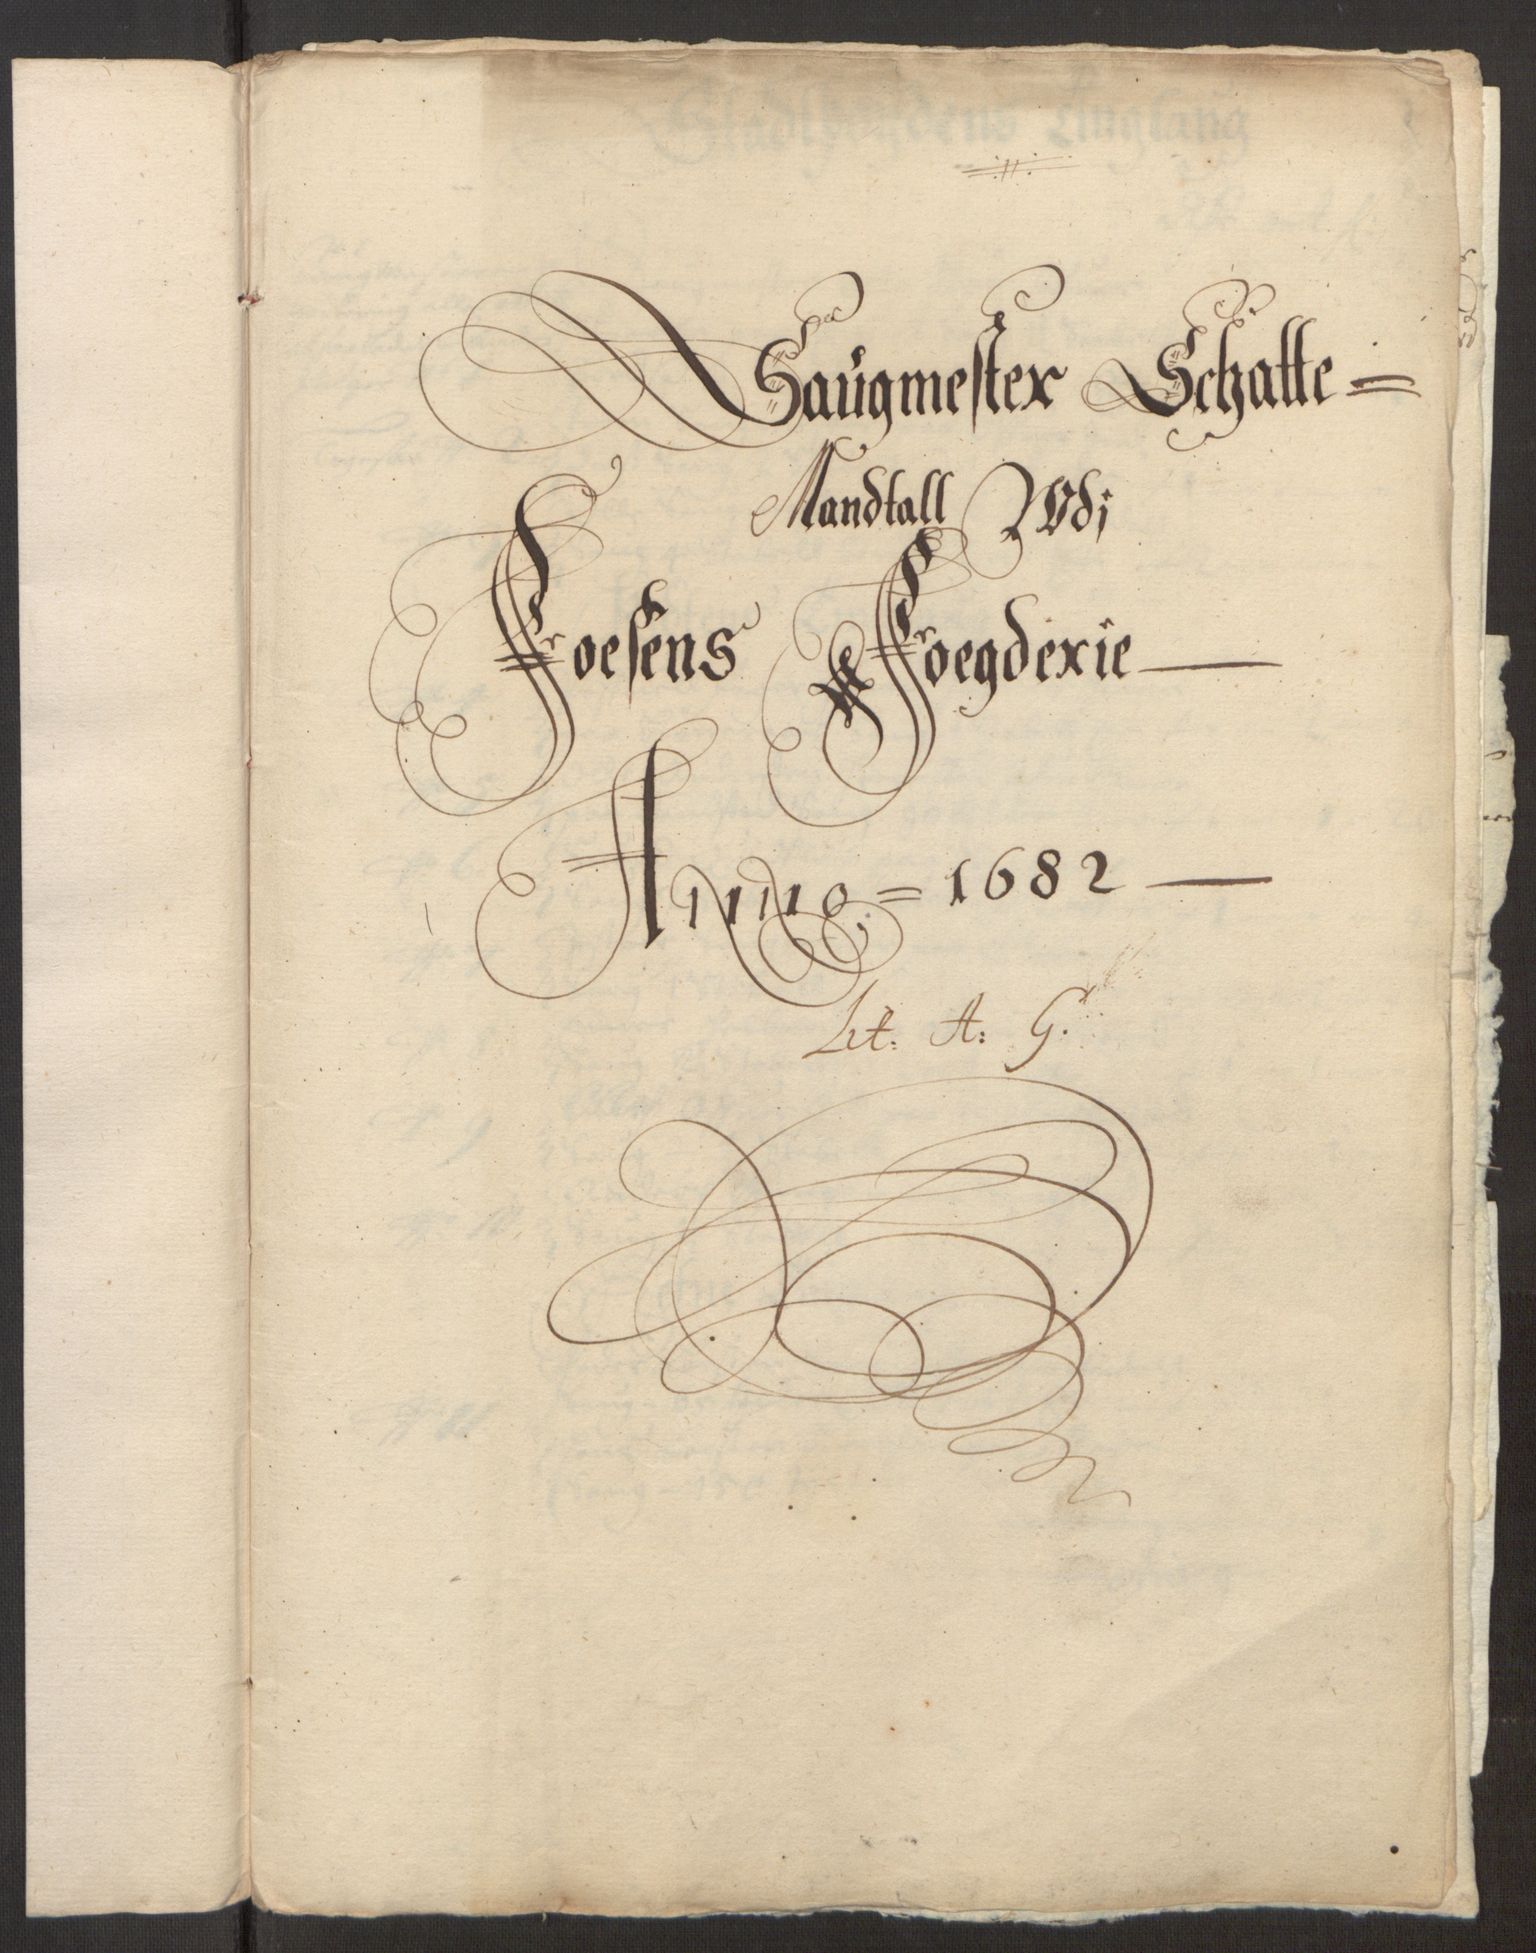 Saugmester Schatte =
Mandtall Udj
Foesens Foegderie —
Anno = 1682 —
Lit: A: G.